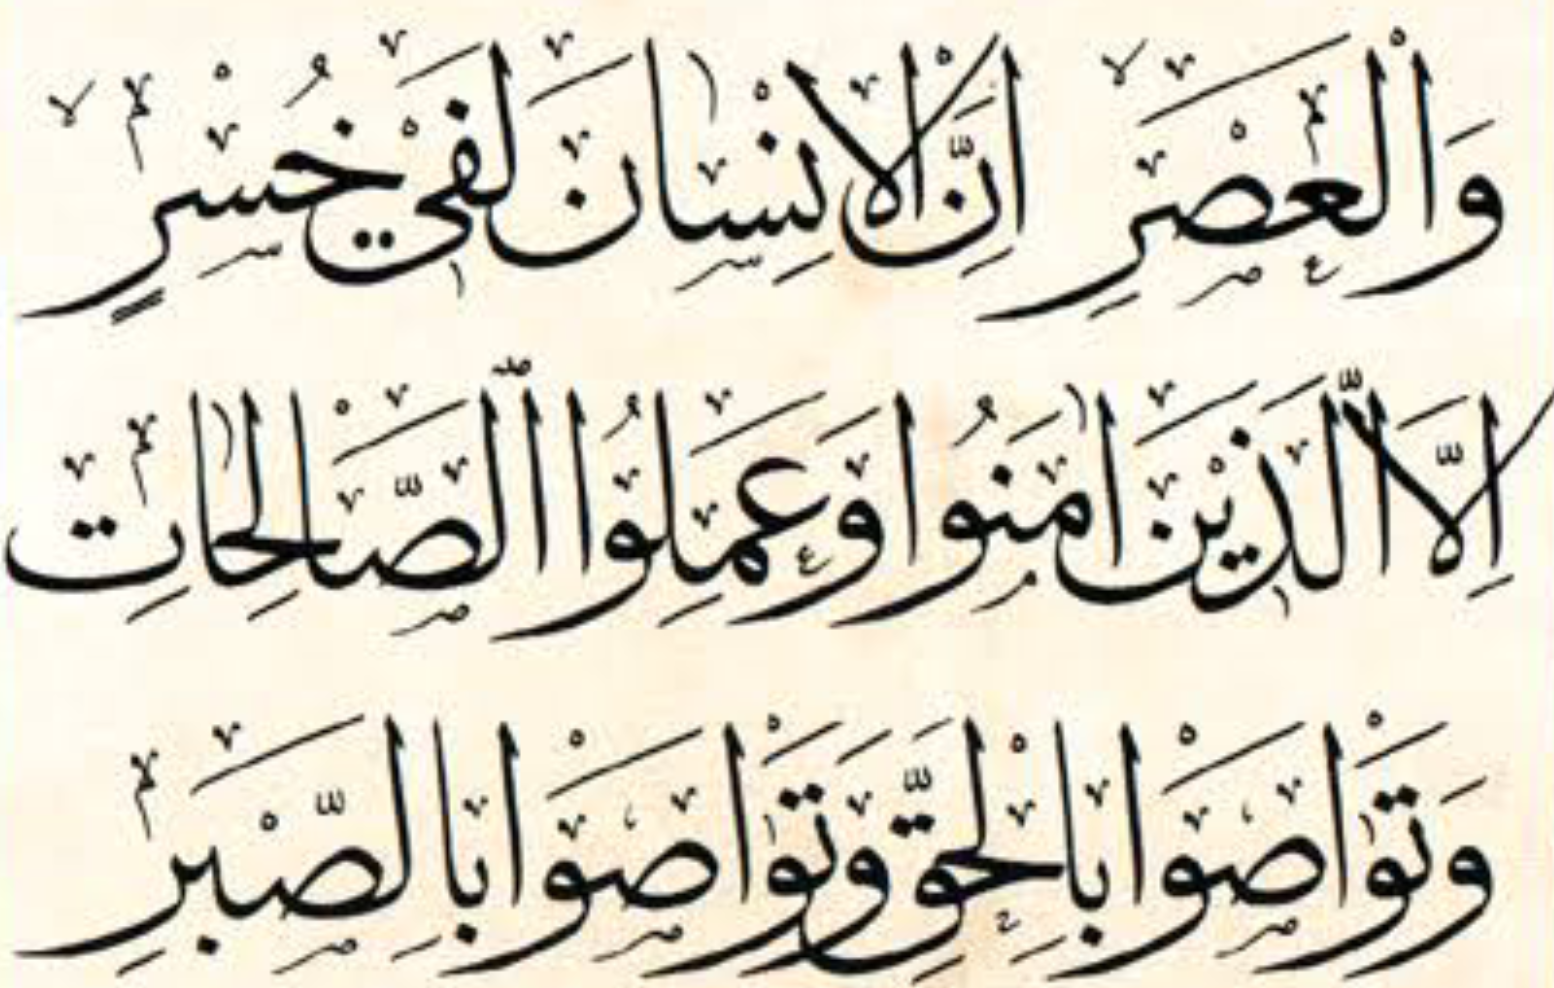 وَالْعَصْرِ اِنَّ الْاِنْسَانَ لَفَيْ خُسْرٍ
اِلَّا الَّذَيْنَ اٰمَنُوا وَعَمِلُوا الصَّالِحَاتِ
وَتَوَاصَوْا بِالْحَقِّ وَتَوَاصَوْا بِالصَّبْرِ